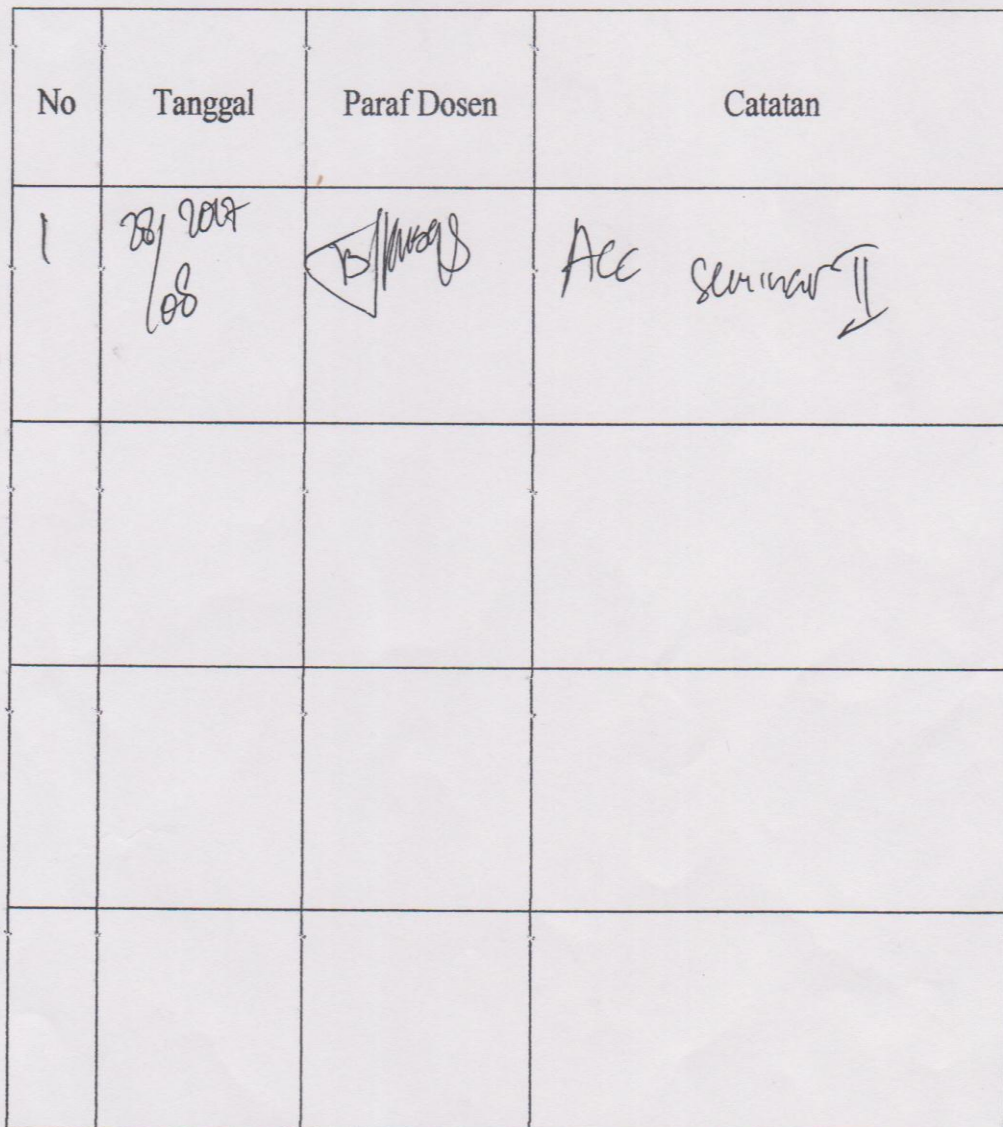 No Tanggal Paraf Dosen Catatan
1 28/08 2017 ACC Seminar II